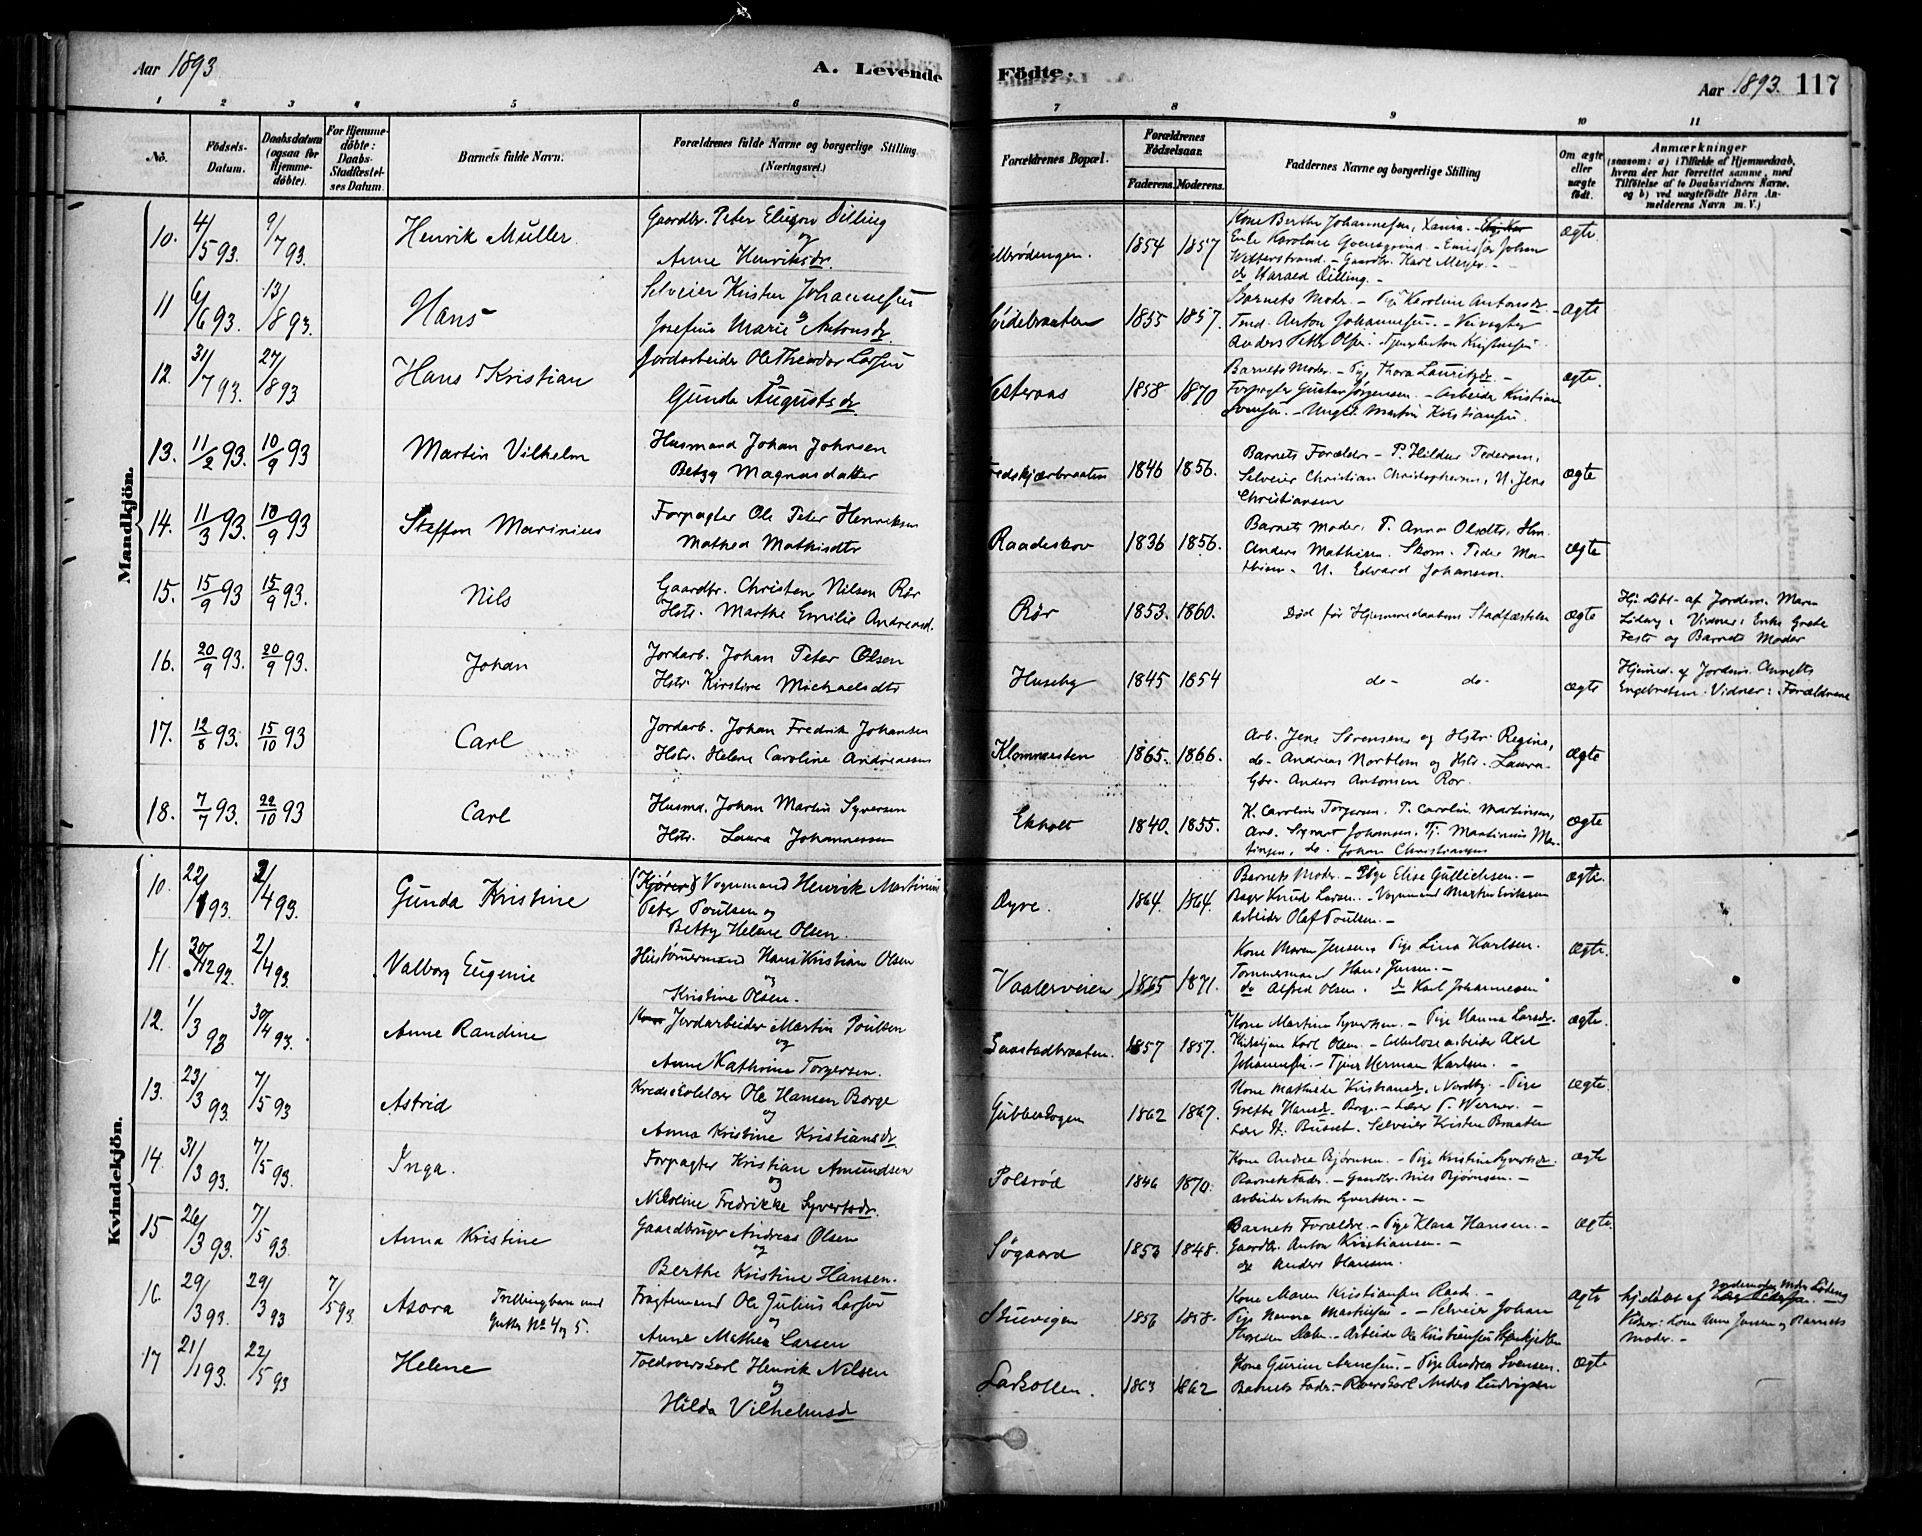 Aar 1893 A. Levende Födte. Aar 1893. 117
1 2 3 4 5 6 7 8 9 10 11
No.
Födsels-Datum.
Daabsdatum (ogsaa for Hjemme-döbte).
For Hjemme-döbte: Daabs-Stadfæstel-ses Datum.
Barnets fulde Navn.
Forældrenes fulde Navne og borgerlige Stilling (Næringsvei.)
Forældrenes Bopæl.
Forældrenes Födselsaar.
Faderens. Moderens.
Faddernes Navne og borgerlige Stilling
Om ægte eller uægte født.
Anmærkninger
(saasom: a) i Tilfælde af Hjemmedaab,
hvem der har forrettet samme, med
Tilföielse af to Daabsvidners Navne.
og b) ved uægtefödte Börn An-
melderens Navn m. V.)
Mandkjön.
10. 4/5 93. 9/7 93. Henrik Müller. Gaardbr. Peter Elieson Dilling
og
Anne Henriksdr.
1854 1857 Kone Berthe Johannesen,
Enke Karoline
Gaardbr. Karl Meyer. -
do Harald Dilling. -
ægte.
11 6/6 93. 13/8 93. Hans Selveier Kristen Johannesen
og
Josefine Marie Antonsdr.
1855 1857. Barnets Moder. - Pige Karoline Antonsdr
Anton Johannesen. -
Anders Peter Olsen.
ægte
12. 31/7 93. 27/8 93 Hans Kristian Jordarbeider Ole Theodor Larsen
og
Gunda Augustsdr
Vesteraas 1858 1870 Barnets Moder. - Pige Thora Lauritzdr. -
Forpagter Gustav Jørgensen. - Arbeider Kristian
Svensen. - Ungk. Martin Kristiansen.
ægte.
13. 11/2 93. 10/9 93 Martin Vilhelm Husmand Johan Johnsen
Betzy Magnusdatter
1846 1856. Barnets Forældre - P. Hilder Pedersen,
Selveier Christian Christophersen, U. Jens
Christiansen
ægte
14. 11/3 93. 10/9 93 Steffen Marinius Forpagter Ole Peter Henriksen
Mathea Mathisdtr
Raadeskov 1836 1856. Barnets Moder, P. Anna Olsdtr, Hm.
Anders Mathisen. Skom. Peder Ma-
thisen. U. Edvard Johansen.
ægte
15. 15/9 93 15/9 93. Nils Gaardbr. Christen Nilsen Rør
Hstr. Marthe Emilie Andreasd.
Rør 1853. 1860. Død før Hjemmedaabens Stadfæstelse ægte Hj. döbt af Jordem. Maren
Vidner: Enke Grete
og Barnets Moder
16. 20/9 93. 20/9 93. Johan Jordarb. Johan Peter Olsen
Hstr. Kirstine Michaelsdtr
Huseby 1845 1854 do- do- ægte Hjemmed. af Jordem. Annette
Engebretsen. Vidner: Forældrene
17. 12/8 93. 15/10 93 Carl Jordarb. Johan Fredrik Johansen
Hstr. Helene Caroline Andreassen
Klommesten 1865. 1866. Arb. Jens Sørensen og Hstr. Regine,
do- Andreas Norblom og Hstr. Laura.
Gbr. Anders Antonsen Rør.
ægte
18. 7/7 93. 22/10 93 Carl Husmd. Johan Martin Syversen
Hstr. Laura Johannessen
Ekholt 1840. 1855. K. Caroline Torgersen. P. Caroline Martinsen,
Arb. Sigvart Johansen. Tj. Martinius Mar-
tinsen, do. Johan Christiansen
ægte
Kvindekjön.
10. 22/1 93. 2/4 93. Gunda Kristine (Kjører) Vognmand Henrik Martinius
Peter Poulsen og
Betty Helene Olsen.
Dyre. 1864. 1864. Barnets Moder. - Pige Elise Gullichsen. -
Bager Knud Larsen. - Vognmand Martin Eriksen
Arbeider Olaf Poulsen. -
ægte.
11. 30/12 92. 2/4 93. Valborg Eugenie Hustømermand Hans Kristian Olsen
og
Kristine Olsen.
Vaalerveien 1865 1871. Kone Maren Jensen. Pige Lina Karlsen.
Tømmermand Hans Jensen. -
do Alfred Olsen. do Karl Johannesen
ægte.
12. 1/3 93 30/4 93. Anne Randine Jordarbeider Martin Poulsen
og
Anne Kathrine Torgersen.
Saastadbraaten. 1857 1857. Kone Martine Syversen. - Pige Hanna Larsdr.
Karl Olsen. - Cellulosearbeider Axel
Johannesen. - Tjener Herman Karlsen. -
ægte.
13. 23/3 93. 7/5 93 Astrid Kredsskolelærer Ole Hansen Borge
og
Anna Kristine Kristiansdr
Gubbeskogen 1862 1867. Kone Mathilde Kristiansdr. Nordby. - Pige
Grethe Hansdr. Borge. - Lærer P. Werner. -
Selveier Kristen Braaten
ægte.
14. 31/3 93. 7/5 93. Inga. Forpagter Kristian Amundsen
og
Nikoline Fredrikke Syvertsdr.
Polsrød 1846 1870. Kone Andrea Bjørnsen. - Pige Kristine Syvertsdr.
Barnets Fader. - Gaardbr. Nils Bjørnsen. -
Arbeider Anton Syvertsen. -
ægte
15 26/3 93. 7/5 93. Anna Kristine Gaardbruger Andreas Olsen
og
Berthe Kristine Hansen.
Søgaard 1853 1848. Barnets Forældre. - Pige Klara Hansen. -
Gaardbr. Anton Kristiansen. -
do Anders Hansen.
ægte.
16. 29/3 93. 29/3 93 7/5 93. Asora Trillingbarn med
Gutter No 4 og 5.
Fragtemand Ole Julius Larsen
og
Anne Mathea Larsen
Stuevigen 1856 1858. Kone Maren Kristiansen Raade. -
Pige Hanna Mathisen. - Selveier Johan
Arbeider Ole Kristiansen
ægte hjdöbt af Jordemoder
Vidner: Kone Anne Jensen og Barnets
Moder. -
17 21/1 93. 22/5 93 Helene Toldroerskarl Henrik Nilsen
og
Hilda Vilhelmsdr
Larkollen. 1863 1862 Kone Gurine Arnesen. - Pige Andrea Svensen.
Barnets Fader. - Roerskarl Anders Ludvigsen
ægte